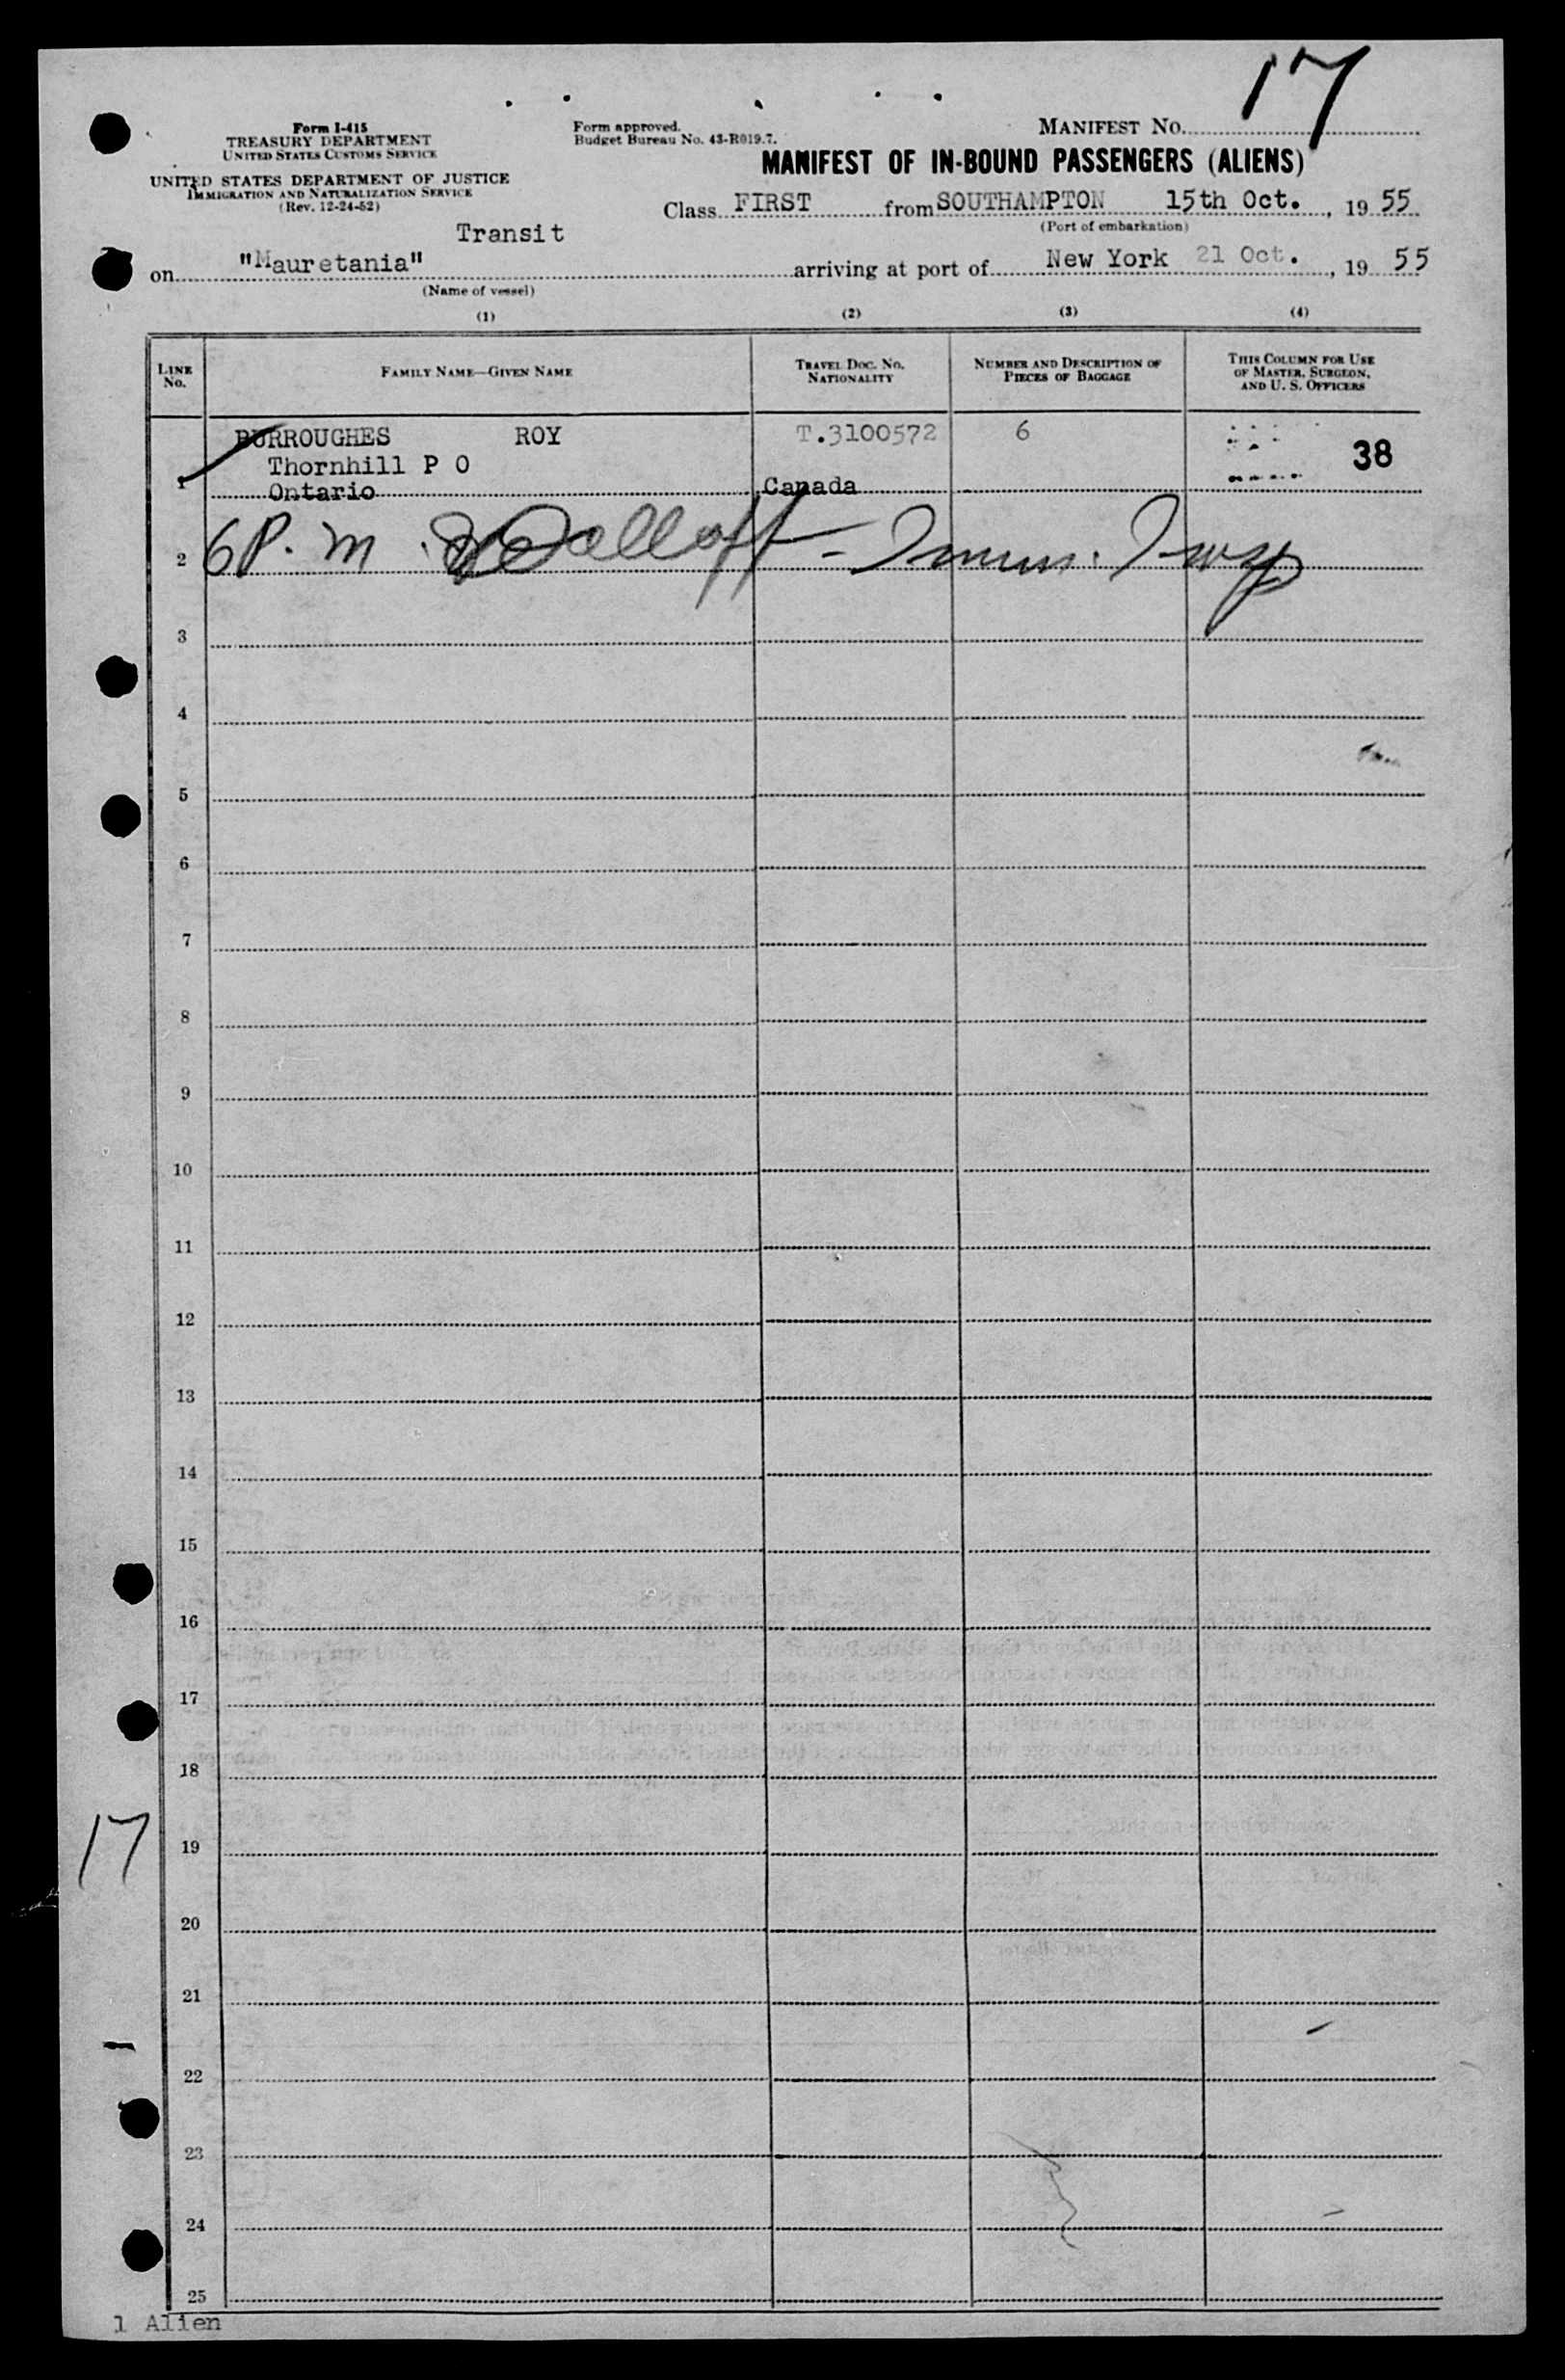 17
Form I-415
TREASURY DEPARTMENT
UNITED STATES CUSTOMS SERVICE
UNITED STATES DEPARTMENT OF JUSTICE
IMMIGRATION AND NATURALIZATION SERVICE
(Rev. 12-24-52)
Form approved.
Budget Bureau No. 43-R019.7.
MANIFEST NO.
MANIFEST OF IN-BOUND PASSENGERS (ALIENS)
Class FIRST from SOUTHAMPTON 15th Oct., 19 55
(Port of embarkation)
Transit
on "Mauretania" arriving at port of New York 21 Oct., 19 55
(Name of vessel)
(1) (2) (3) (4)
LINE NO. FAMILY NAME—GIVEN NAME TRAVEL DOC. NO. NATIONALITY NUMBER AND DESCRIPTION OF PIECES OF BAGGAGE THIS COLUMN FOR USE OF MASTER, SURGEON, AND U. S. OFFICERS
BURROUGHES ROY T.3100572 6
Thornhill P O 38
1 Ontario Canada
2 6 P. M. Immn. Insp
3
4
5
6
7
8
9
10
11
12
13
14
15
16
17
18
17
19
20
21
22
23
24
25
1 Alien